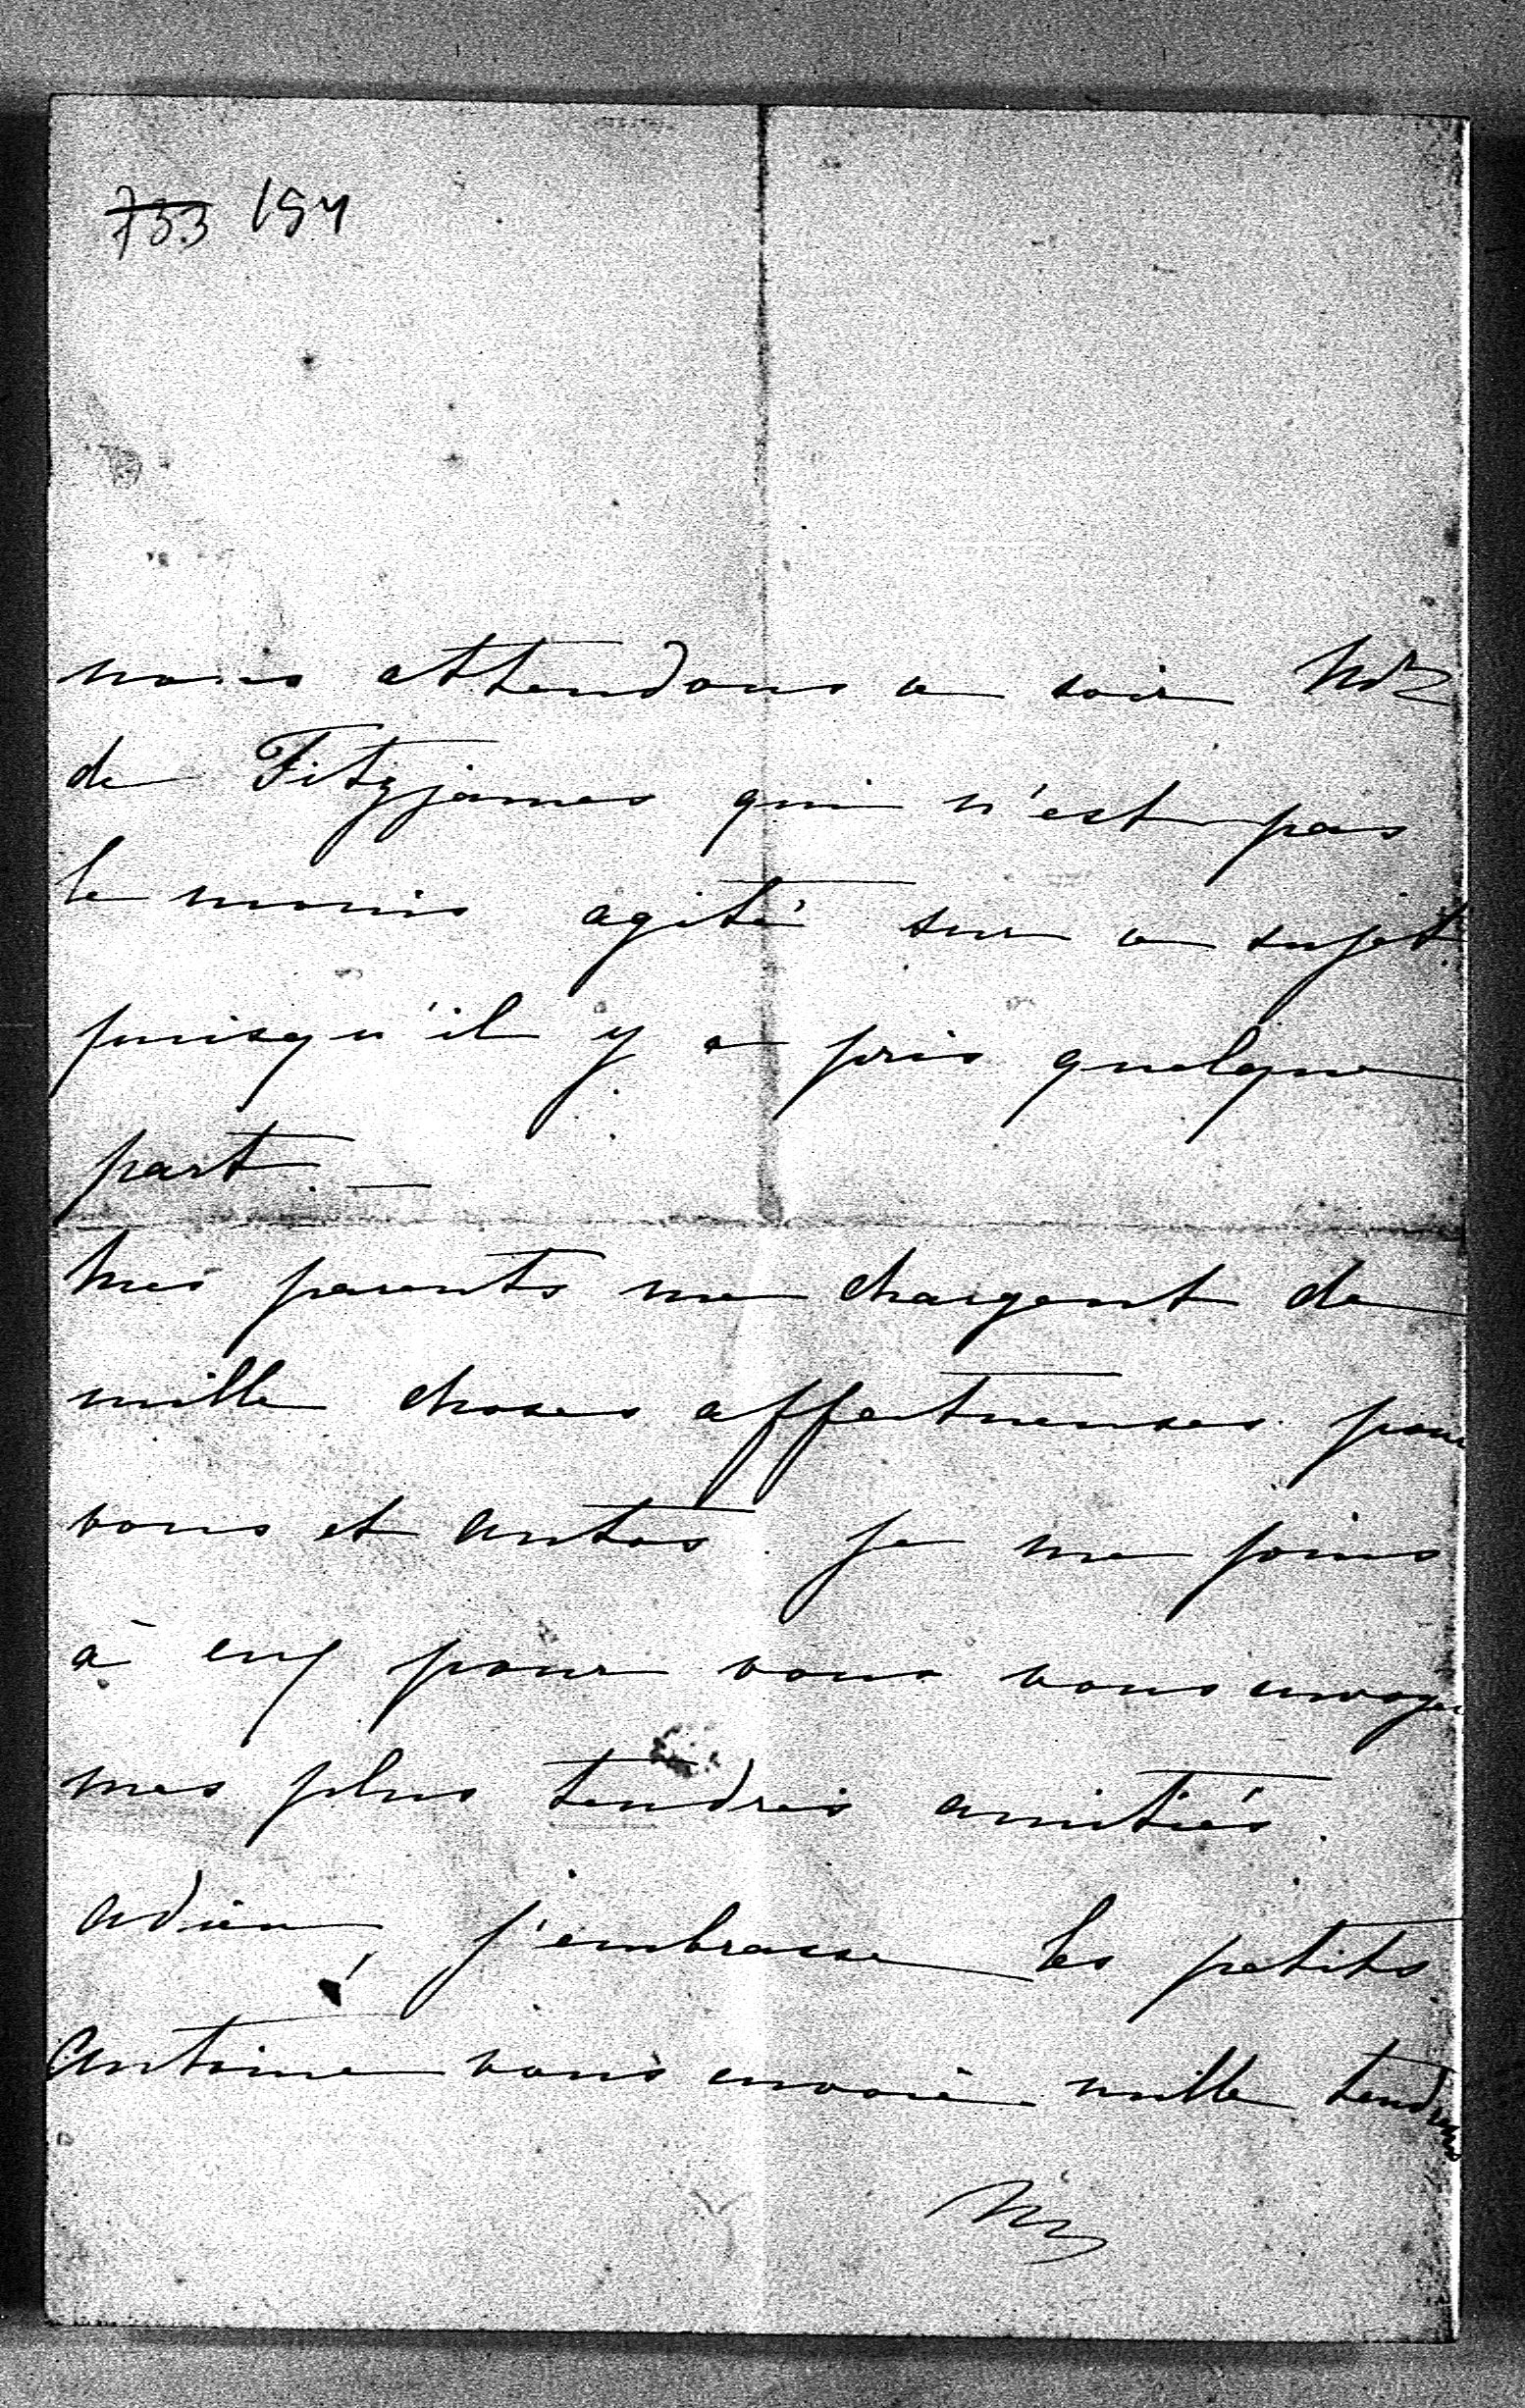 733 154
nous attendons ce soir Mr
de Fitzjames qui n'est pas
le moins agité sur ce sujet
puisqu'il y a pris quelque
part. —
Mes parents me chargent de
mille choses affectueuses pour
vous et Antos. Je me joins
à eux pour vous envoyer
mes plus tendres amitiés.
adieu, j'embrasse les petits
Antoine vous envoie mille tendresses